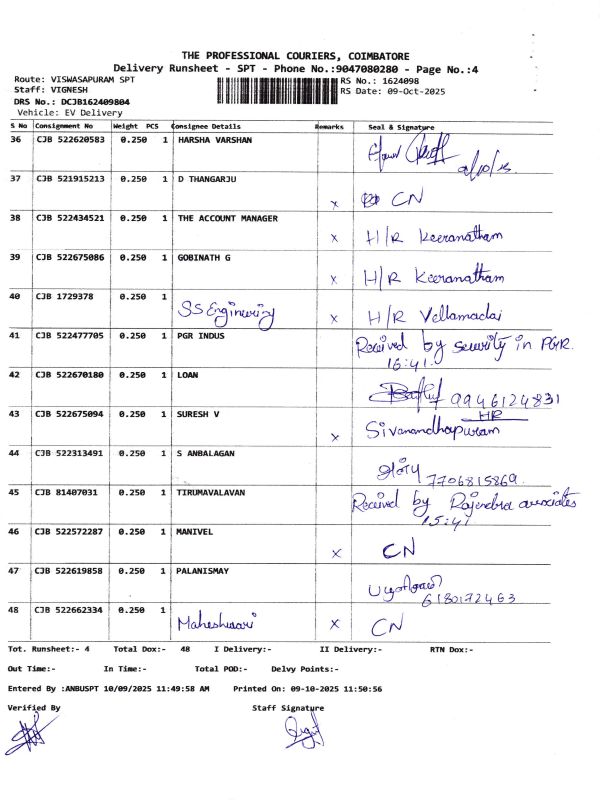 THE PROFESSIONAL COURIERS, COIMBATORE
Delivery Runsheet - SPT - Phone No.:9047080280 - Page No.:4
Route: VISWASAPURAM SPT RS No.: 1624098
Staff: VIGNESH RS Date: 09-Oct-2025
DRS No.: DCJB162409804
Vehicle: EV Delivery
S No Consignment No Weight PCS Consignee Details Remarks Seal & Signature
36 CJB 522620583 0.250 1 HARSHA VARSHAN
37 CJB 521915213 0.250 1 D THANGARJU x CN
38 CJB 522434521 0.250 1 THE ACCOUNT MANAGER x H/R Keeranatham
39 CJB 522675086 0.250 1 GOBINATH G x H/R Keeranatham
40 CJB 1729378 0.250 1 SS Engineering x H/R Vellamadai
41 CJB 522477705 0.250 1 PGR INDUS Received by security in PGR.
16:41.
42 CJB 522670180 0.250 1 LOAN 9946124831
43 CJB 522675094 0.250 1 SURESH V x HR
Sivanandhapuram
44 CJB 522313491 0.250 1 S ANBALAGAN 7706815869.
45 CJB 81407031 0.250 1 TIRUMAVALAVAN Received by Rajendra associates
15:41
46 CJB 522572287 0.250 1 MANIVEL x CN
47 CJB 522619858 0.250 1 PALANISMAY
6180172463
48 CJB 522662334 0.250 1 Maheshwari x CN
Tot. Runsheet:- 4 Total Dox:- 48 I Delivery:- II Delivery:- RTN Dox:-
Out Time:- In Time:- Total POD:- Delvy Points:-
Entered By :ANBUSPT 10/09/2025 11:49:58 AM Printed On: 09-10-2025 11:50:56
Verified By Staff Signature